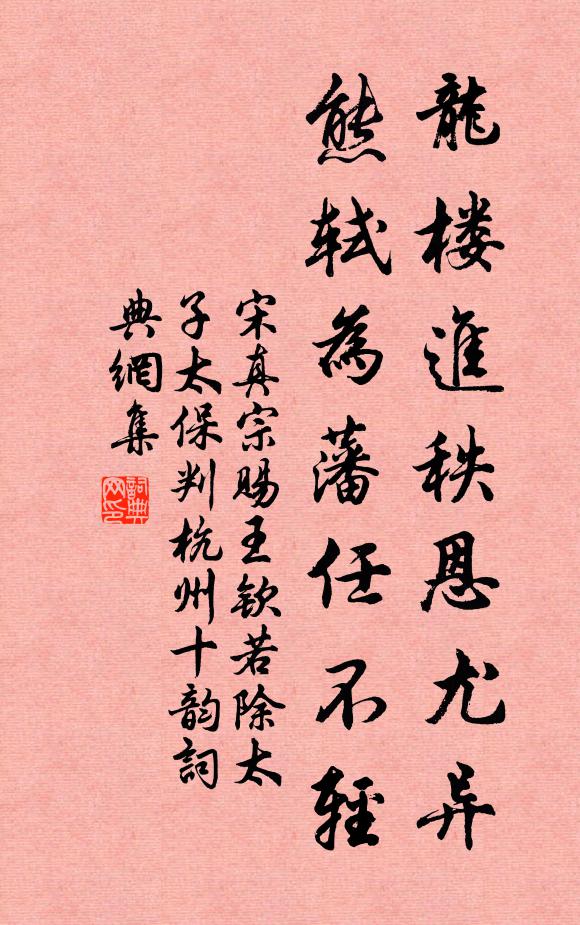 龍楼進秩恩尤异
熊轼為藩任不輕
宋真宗賜王欽若除太
子太保判杭州十韵詞
典網集
詞典網印